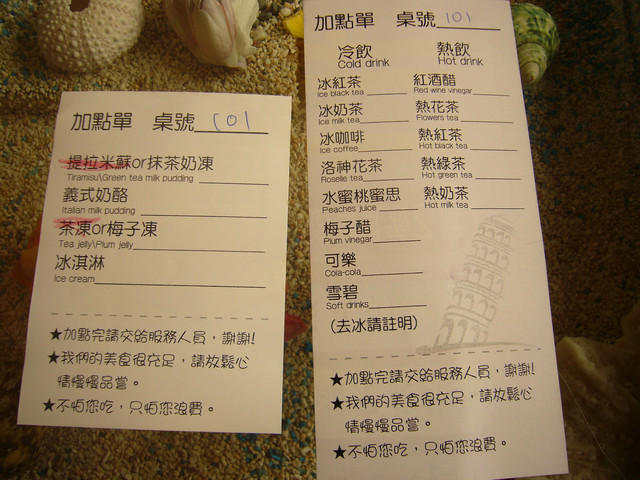 加點單 桌號 101
提拉米蘇or抹茶奶凍
Tiramisu\Green tea milk pudding
義式奶酪
Italian milk pudding
茶凍or梅子凍
Tea jelly\Plum jelly
冰淇淋
Ice cream
★加點完請交給服務人員，謝謝!
★我們的美食很充足，請放鬆心
情慢慢品嘗。
★不怕您吃，只怕您浪費。
加點單 桌號 101
冷飲 熱飲
Cold drink Hot drink
冰紅茶 紅酒醋
Ice black tea Red wine vinegar
冰奶茶 熱花茶
Ice milk tea Flowers tea
冰咖啡 熱紅茶
Ice coffee Hot black tea
洛神花茶 熱綠茶
Roselle tea Hot green tea
水蜜桃蜜思 熱奶茶
Peaches juice Hot milk tea
梅子醋
Plum vinegar
可樂
Cola-cola
雪碧
Soft drinks
(去冰請註明)
★加點完請交給服務人員，謝謝!
★我們的美食很充足，請放鬆心
情慢慢品嘗。
★不怕您吃，只怕您浪費。